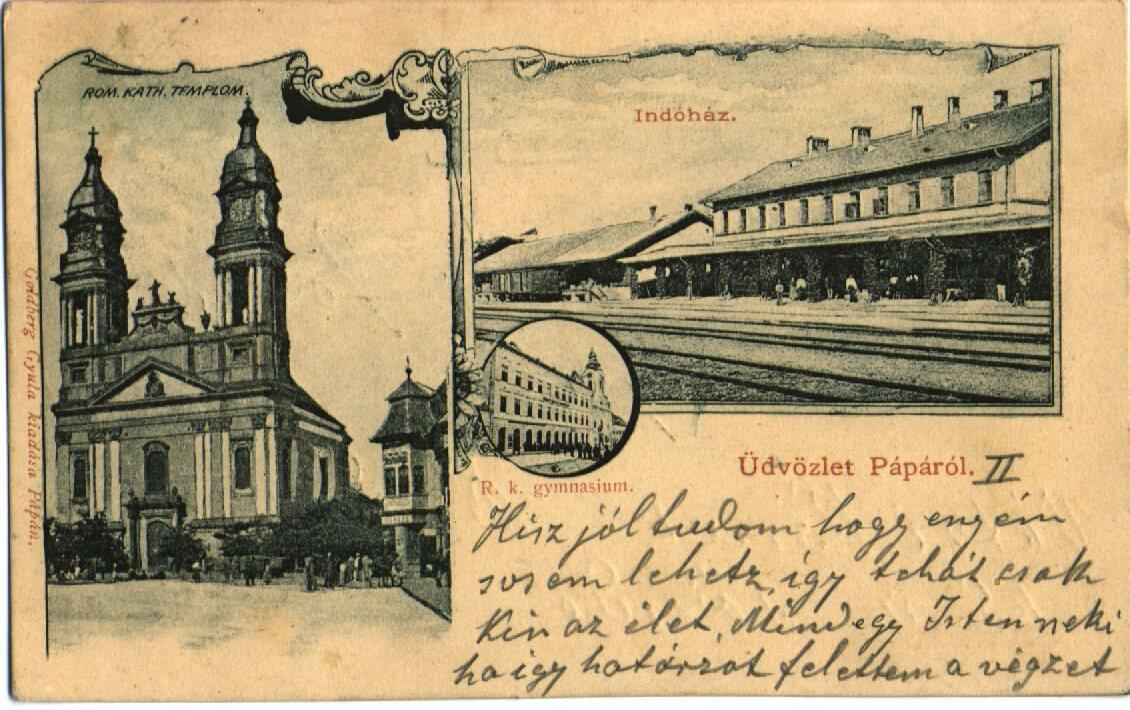 ROM. KATH. TEMPLOM.
Indóház.
Goldberg Gyula kiadása Pápán.
R. k. gymnasium.
Üdvözlet Pápáról. II
Hisz jól tudom hogy engem
sosem lehetz, így tehát csak
kin az élet. Mindegy Isten neki
ha így határzot felettem a végzet